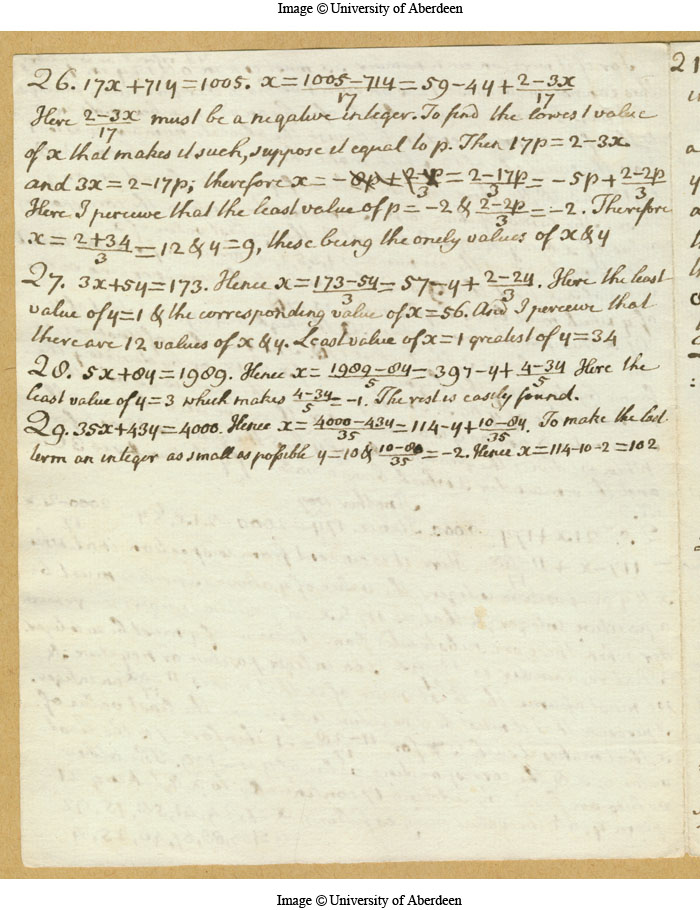 Image © University of Aberdeen
26. 17x+71y=1005. x=1005−71y/17=59−4y+2−3x/17
Here 2−3x/17 must be a negative integer. To find the lowest value
of x that makes it such, suppose it equal to p. Then 17p=2−3x.
and 3x=2−17p; therefore x= =2−17p/3=−5p+2−2p/3
Here I perceive that the least value of p=−2 & 2−2p/3=−2. Therefore
x=2+34/3=12 & y=9, these being the onely values of x & y
27. 3x+5y=173. Hence x=173−5y/3=57−y+2−2y/3. Here the least
value of y=1 & the corresponding value of x=56. And I perceive that
there are 12 values of x & y. Least value of x=1 greatest of y=34
28. 5x+8y=1989. Hence x=1989−8y/5=397−y+4−3y/5 Here the
least value of y=3 which makes 4−3y/5=−1. The rest is easily found.
29. 35x+43y=4000. Hence x=4000−43y/35=114−y+10−8y/35. To make the last
term an integer as small as possible y=10 & 10−8y/35=−2. Hence x=114−10−2=102
21
Image © University of Aberdeen